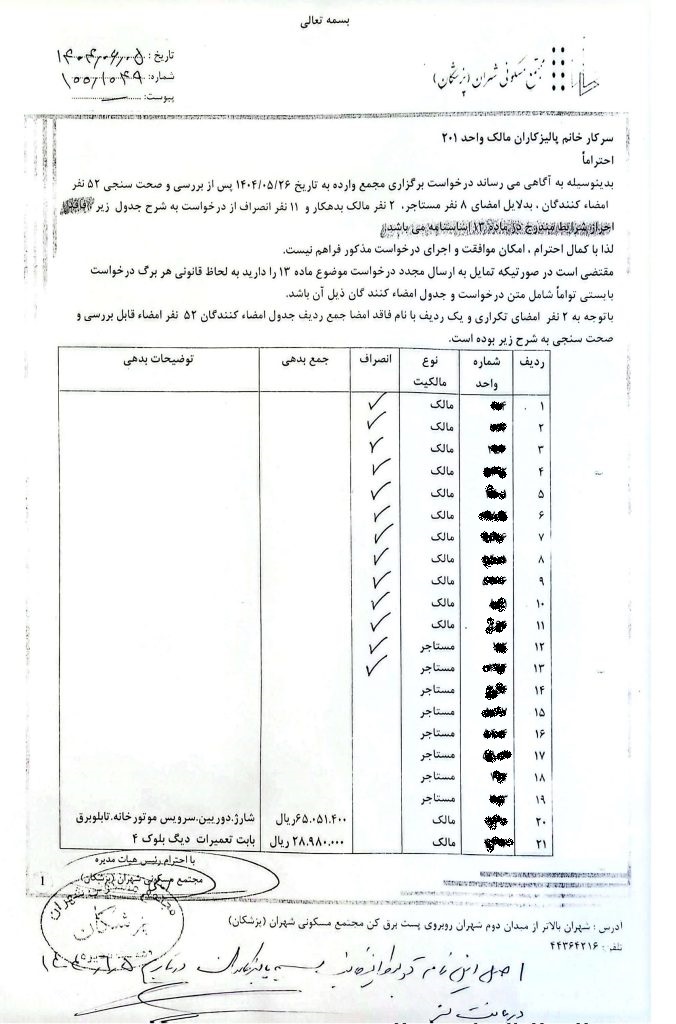 بسمه تعالی
مجتمع مسکونی شهران (پزشکان)
تاریخ : ۱۴۰۴،۰۶،۰۵
شماره: ۱۰۰/۱۰۴۹
پیوست:
سرکار خانم پالیزکاران مالک واحد ۲۰۱
احتراماً
بدینوسیله به آگاهی می رساند درخواست برگزاری مجمع وارده به تاریخ ۱۴۰۴/۰۵/۲۶ پس از بررسی و صحت سنجی ۵۲ نفر
امضاء کنندگان ، بدلایل امضای ۸ نفر مستاجر، ۲ نفر مالک بدهکار و ۱۱ نفر انصراف از درخواست به شرح جدول زیر ، فاقد
احراز شرایط مندرج در ماده ۱۳ اساسنامه می باشد.
لذا با کمال احترام ، امکان موافقت و اجرای درخواست مذکور فراهم نیست.
مقتضی است در صورتیکه تمایل به ارسال مجدد درخواست موضوع ماده ۱۳ را دارید به لحاظ قانونی هر برگ درخواست
بایستی تواماً شامل متن درخواست و جدول امضاء کنند گان ذیل آن باشد.
باتوجه به ۲ نفر امضای تکراری و یک ردیف با نام فاقد امضا جمع ردیف جدول امضاء کنندگان ۵۲ نفر امضاء قابل بررسی و
صحت سنجی به شرح زیر بوده است.
ردیف شماره واحد نوع مالکیت انصراف جمع بدهی توضیحات بدهی
۱ مالک ✓
۲ مالک ✓
۳ مالک ✓
۴ مالک ✓
۵ مالک ✓
۶ مالک ✓
۷ مالک ✓
۸ مالک ✓
۹ مالک ✓
۱۰ مالک ✓
۱۱ مالک ✓
۱۲ مستاجر ✓
۱۳ مستاجر ✓
۱۴ مستاجر
۱۵ مستاجر
۱۶ مستاجر
۱۷ مستاجر
۱۸ مستاجر
۱۹ مستاجر
۲۰ مالک ۶۵.۰۵۱.۴۰۰ریال شارژ.دوربین.سرویس موتورخانه.تابلوبرق
۲۱ مالک ۲۸.۹۸۰.۰۰۰ ریال بابت تعمیرات دیگ بلوک ۴
با احترام.رئیس هیات مدیره
مجتمع مسکونی شهران (پزشکان)
1
پزشکان
آدرس : شهران بالاتر از میدان دوم شهران روبروی پست برق کن مجتمع مسکونی شهران (پزشکان)
تلفن : ۴۴۳۶۴۲۱۶
اصل این نامه توسط اینجانب پالیزکاران در تاریخ
دریافت شد